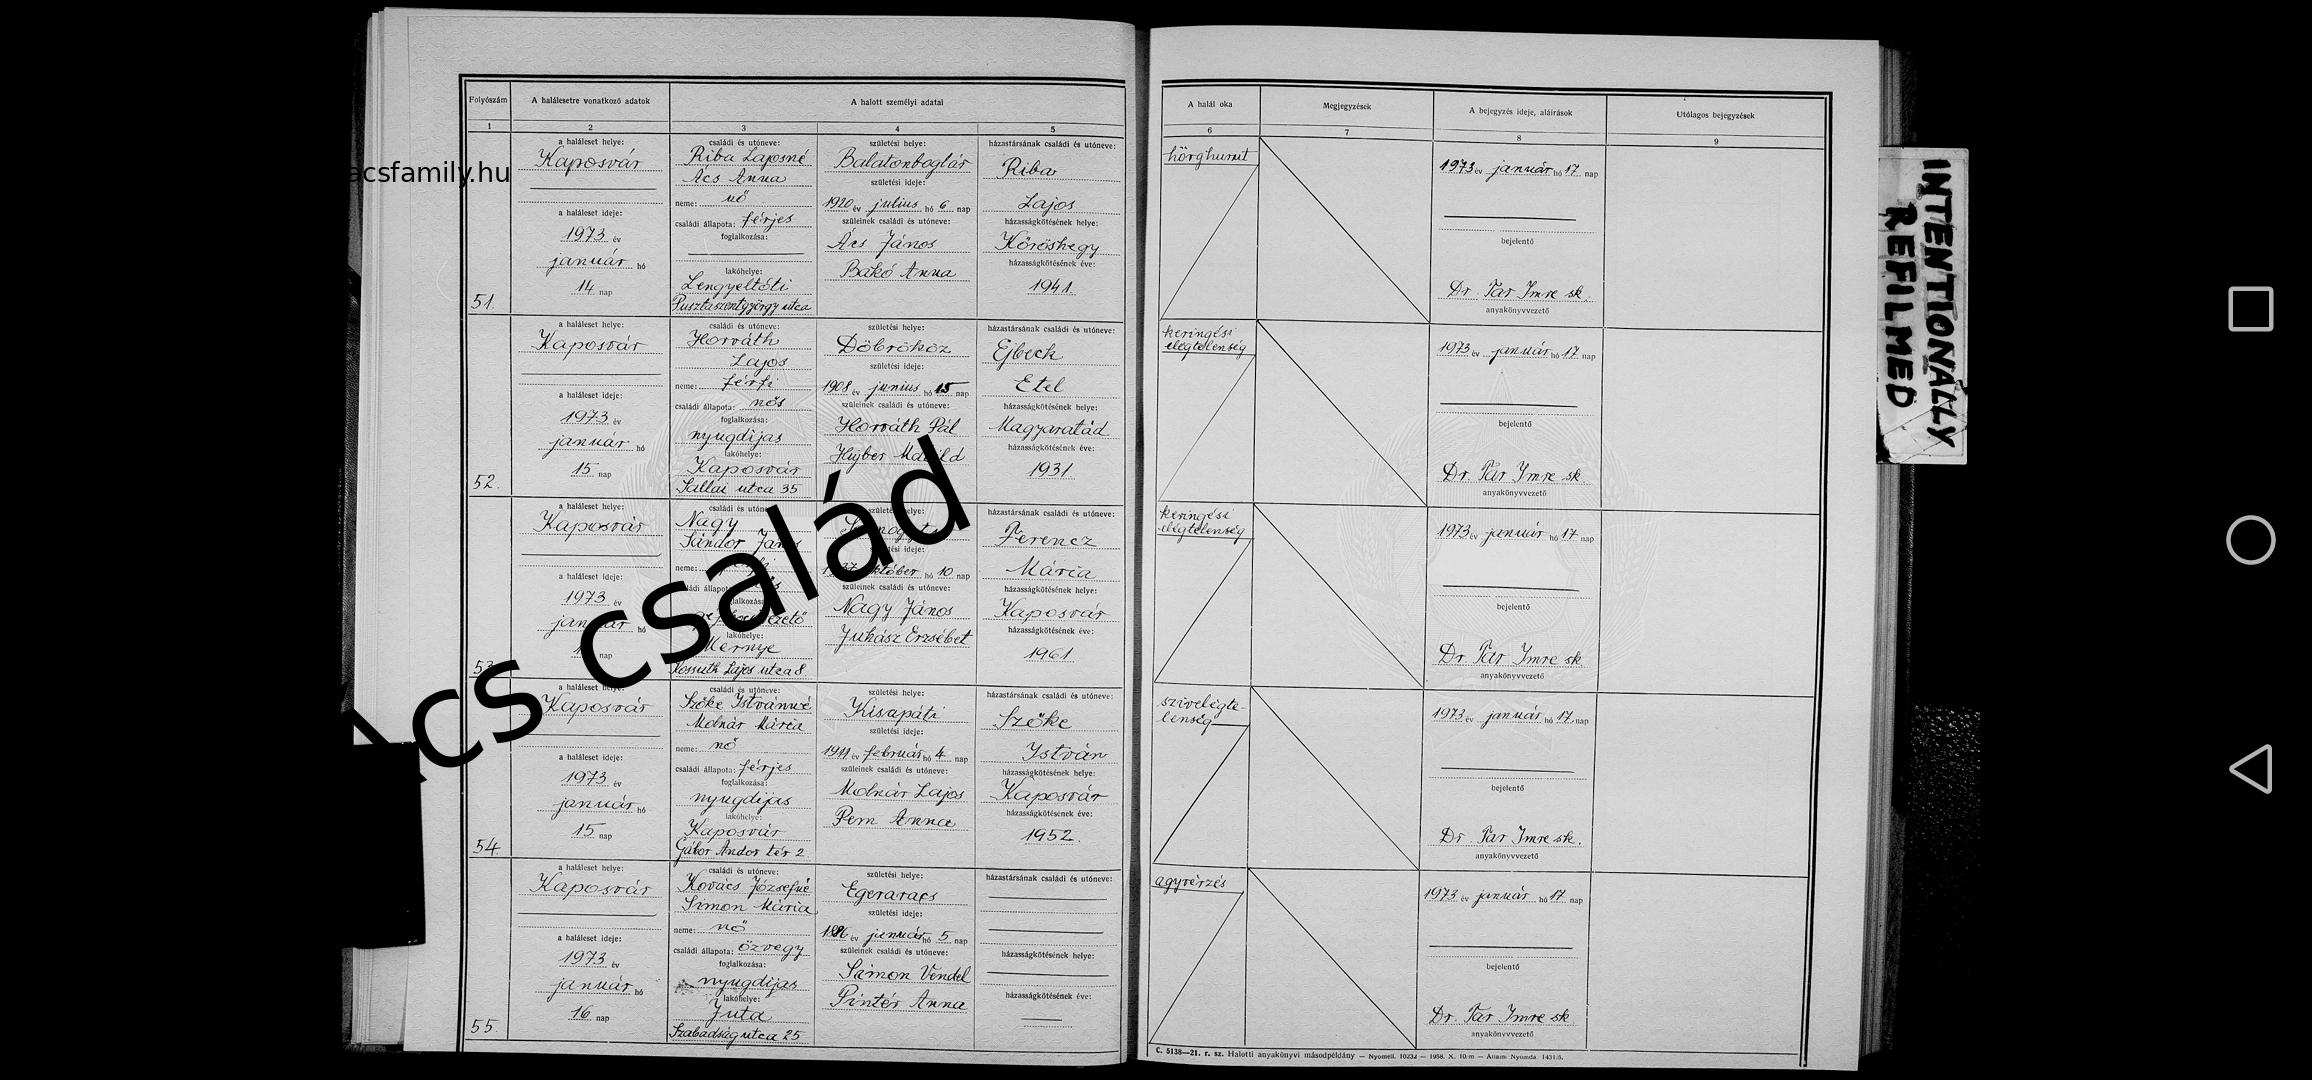 Folyószám
A halálesetre vonatkozó adatok
A halott személyi adatai
1
2
3
4
5
a haláleset helye:
Kaposvár
a haláleset ideje:
1973 év
január hó
14 nap
51.
családi és utóneve:
Riba Lajosné
Ács Anna
neme: nő
családi állapota: férjes
foglalkozása:
lakóhelye:
Lengyeltóti
Pusztaszentgyörgy utca
születési helye:
Balatonboglár
születési ideje:
1920 év július hó 6 nap
szüleinek családi és utóneve:
Ács János
Bakó Anna
házastársának családi és utóneve:
Riba
Lajos
házasságkötésének helye:
Kőröshegy
házasságkötésének éve:
1941
a haláleset helye:
Kaposvár
a haláleset ideje:
1973 év
január hó
15 nap
52.
családi és utóneve:
Horváth
Lajos
neme: férfi
családi állapota: nős
foglalkozása:
nyugdíjas
lakóhelye:
Kaposvár
Sallai utca 35
születési helye:
Döbrököz
születési ideje:
1908 év junius hó 15 nap
szüleinek családi és utóneve:
Horváth Pál
Hujber
házastársának családi és utóneve:
Ejbeck
Etel
házasságkötésének helye:
Magyaratád
házasságkötésének éve:
1931
a haláleset helye:
Kaposvár
a haláleset ideje:
1973 év
január hó
nap
53.
családi és utóneve:
Nagy
Sándor János
neme:
foglalkozása:
lakóhelye:
Mernye
Kossuth Lajos utca 8
születési helye:
születési ideje:
október hó 10 nap
szüleinek családi és utóneve:
Nagy János
Juhász Erzsébet
házastársának családi és utóneve:
Ferencz
Mária
házasságkötésének helye:
Kaposvár
házasságkötésének éve:
1961
a haláleset helye:
Kaposvár
a haláleset ideje:
1973 év
január hó
15 nap
54.
családi és utóneve:
Szőke Istvánné
Molnár Mária
neme: nő
családi állapota: férjes
foglalkozása:
nyugdíjas
lakóhelye:
Kaposvár
Gábor Andor tér 2
születési helye:
Kisapáti
születési ideje:
1911 év február hó 4 nap
szüleinek családi és utóneve:
Molnár Lajos
Pem Anna
házastársának családi és utóneve:
Szőke
István
házasságkötésének helye:
Kaposvár
házasságkötésének éve:
1952.
a haláleset helye:
Kaposvár
a haláleset ideje:
1973 év
január hó
16 nap
55.
családi és utóneve:
Kovács Józsefné
Simon Mária
neme: nő
családi állapota: özvegy
foglalkozása:
nyugdíjas
lakóhelye:
Juta
Szabadság utca 25
születési helye:
Egeraracs
születési ideje:
1886 év január hó 5 nap
szüleinek családi és utóneve:
Simon Vendel
Pintér Anna
házastársának családi és utóneve:
házasságkötésének helye:
házasságkötésének éve:
A halál oka
Megjegyzések
A bejegyzés ideje, aláírások
Utólagos bejegyzések
6
7
8
9
hörghurut
1973 év január hó 17 nap
bejelentő
Dr. Tar Imre sk.
anyakönyvvezető
keringési
elégtelenség
1973 év január hó 17 nap
bejelentő
Dr. Tar Imre sk.
anyakönyvvezető
keringési
elégtelenség
1973 év január hó 17 nap
bejelentő
Dr Tar Imre sk
anyakönyvvezető
szívelégte-
lenség
1973 év január hó 17 nap
bejelentő
Dr. Tar Imre sk.
anyakönyvvezető
agyvérzés
1973 év január hó 17 nap
bejelentő
Dr. Tar Imre sk
anyakönyvvezető
C. 5138—21. r. sz. Halotti anyakönyvi másodpéldány — Nyomell. 10232 — 1958. X. 10 m — Állami Nyomda. 1431/5.
INTENTIONALLY
REFILMED
acsfamily.hu
Ács család